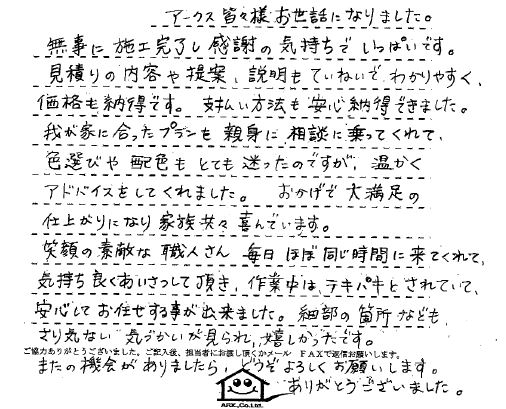 アークス皆々様お世話になりました。
無事に施工完了し感謝の気持ちでいっぱいです。
見積りの内容や提案、説明もていねいで、わかりやすく、
価格も納得です。支払い方法も安心納得できました。
我が家に合ったプランも親身に相談に乗ってくれて、
色選びや配色もとても迷ったのですが、温かく
アドバイスをしてくれました。おかげで大満足の
仕上がりになり家族共々喜んでいます。
笑顔の素敵な職人さん毎日ほぼ同じ時間に来てくれて、
気持ち良くあいさつして頂き、作業中は、テキパキとされていて、
安心してお任せする事が出来ました。細部の箇所なども、
さり気ない気づかいが見られ、嬉しかったです。
ご協力ありがとうございました。ご記入後、担当者にお渡し頂くかメール FAXで返信お願いします。
またの機会がありましたら、どうぞよろしくお願いします。
ありがとうございました。
ARK,.Co.Ltd.